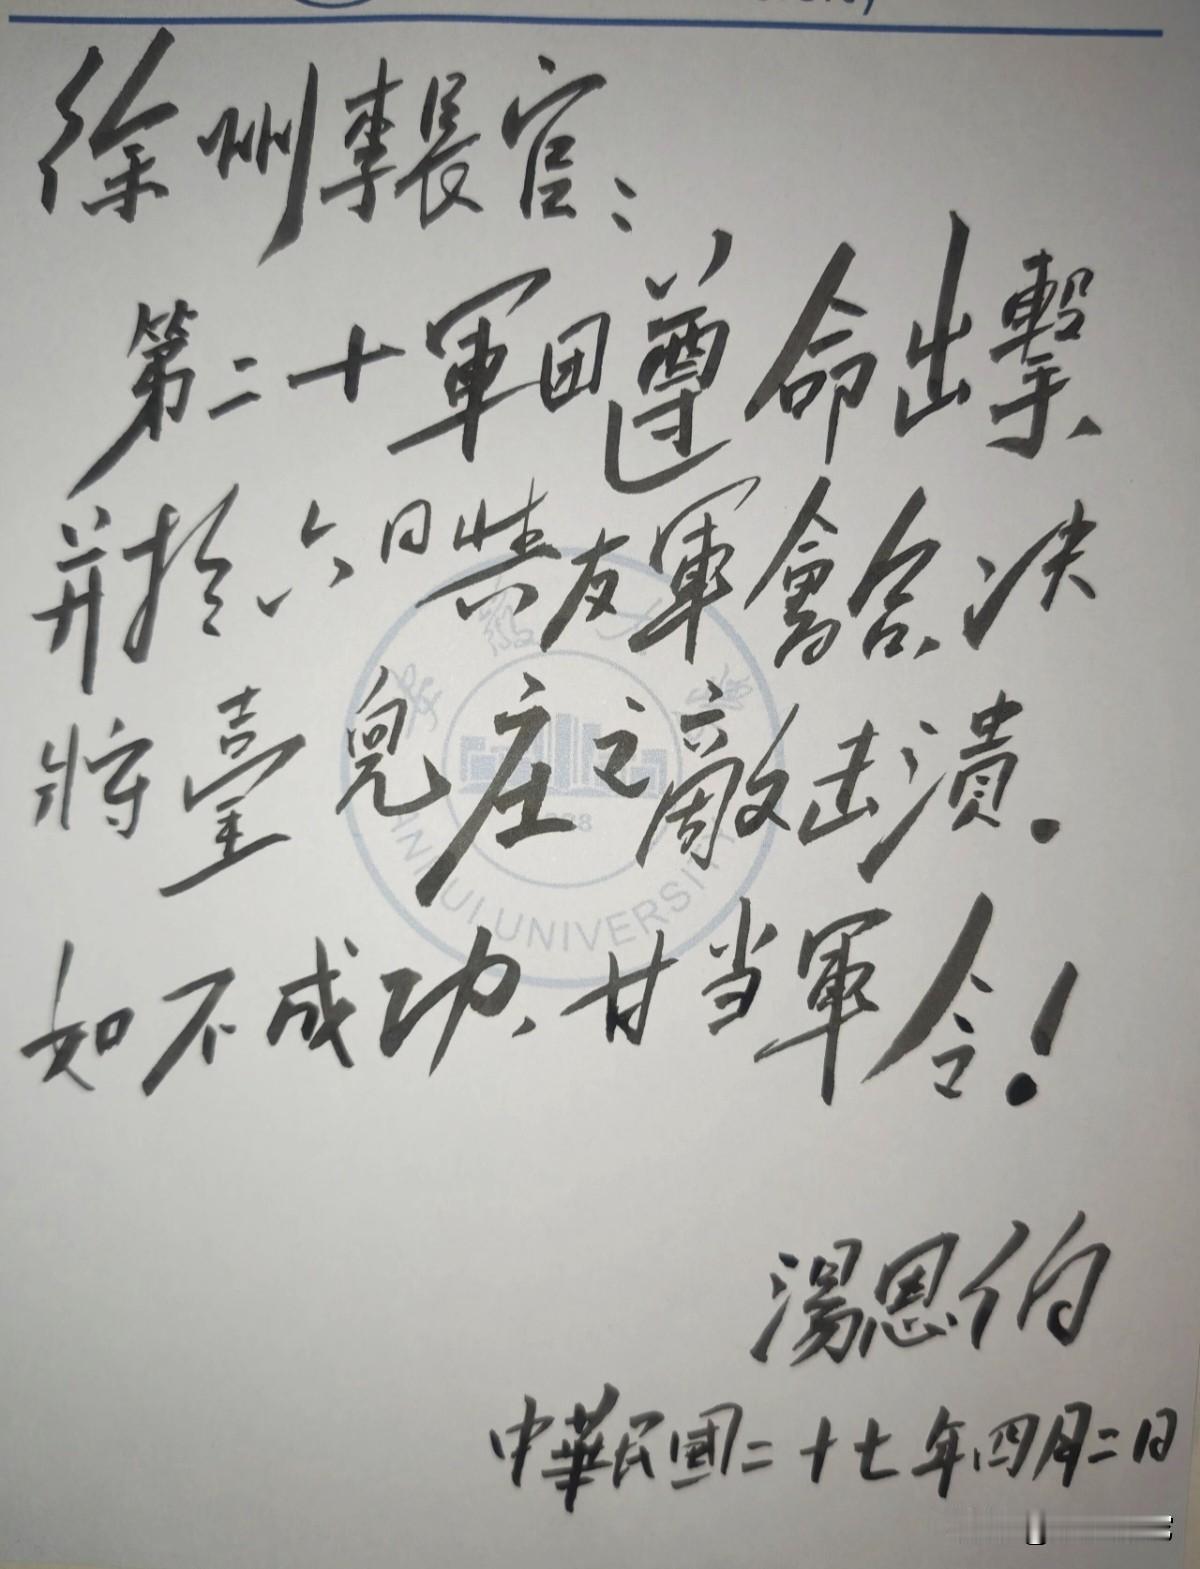 徐州李長官：
第二十軍团遵命出擊、
并於六日與友軍會合、决
將臺兒庄之敵击潰.
如不成功、甘当軍令！
湯恩伯
中華民國二十七年四月二日
ANHUI UNIVERSITY